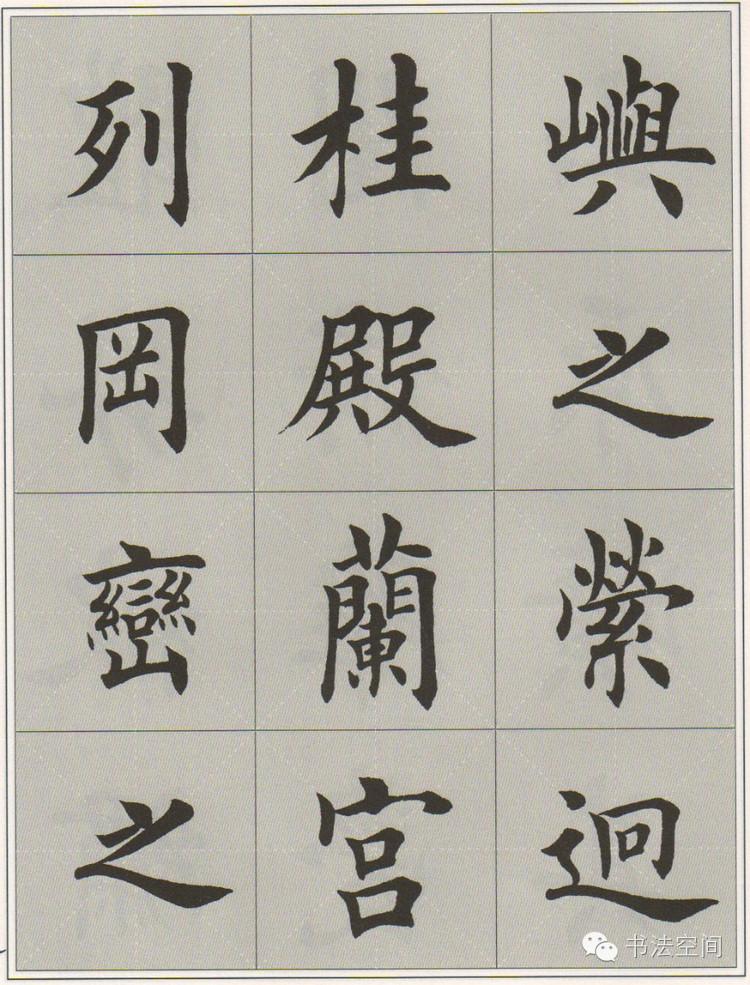 嶼之縈迴
桂殿蘭宮
列岡巒之
书法空间